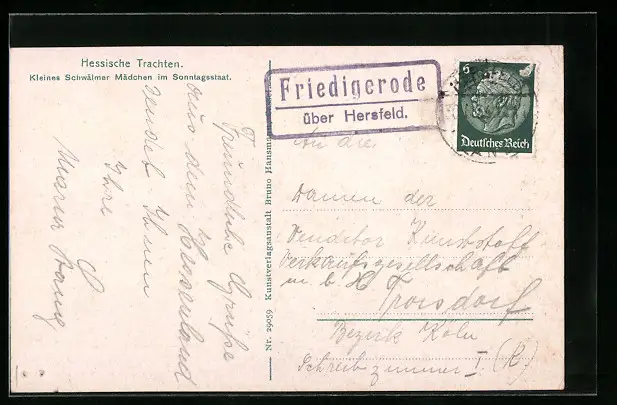 Hessische Trachten.
Kleines Schwälmer Mädchen im Sonntagsstaat.
Freundliche Grüße
aus dem Hessenland
sendet Ihnen
Ihre
Maria
Nr. 29059 Kunstverlagsanstalt Bruno Hansmann
Friedigerode
über Hersfeld.
6
Deutsches Reich
An die
Damen der
Venditor Kunststoff
Verkaufsgesellschaft
m b H
Troisdorf
Bezirk Köln
Schreibzimmer I. (R)